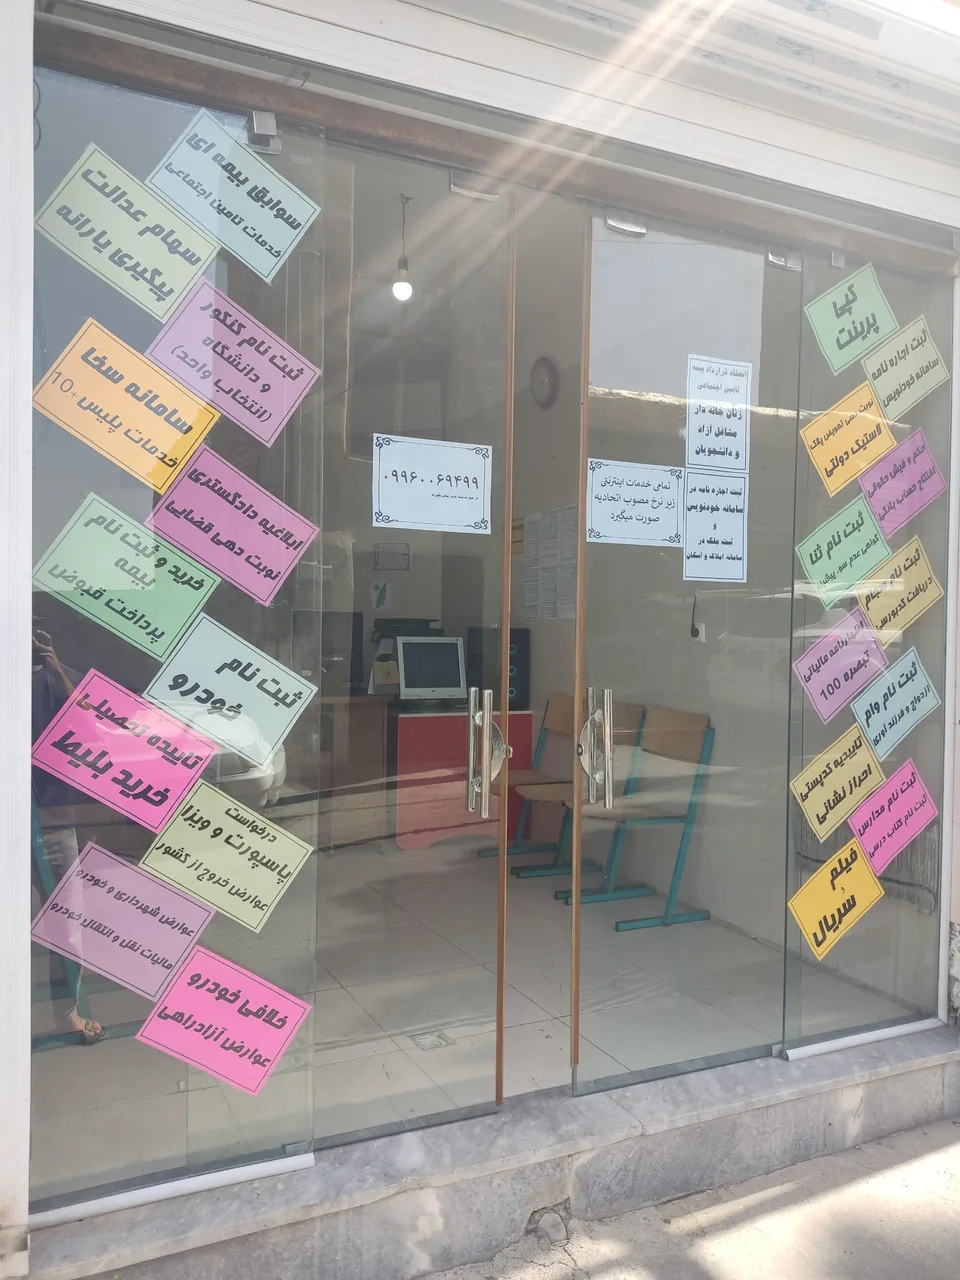 سوابق بیمه ای
خدمات تامین اجتماعی
سهام عدالت
پیگیری یارانه
ثبت نام کنکور
و دانشگاه
(انتخاب واحد)
سامانه سخا
خدمات پلیس+10
ابلاغیه دادگستری
نوبت دهی قضایی
خرید و ثبت نام
بیمه
پرداخت قبوض
ثبت نام
خودرو
تاییده تحصیلی
خرید بلیط
درخواست
پاسپورت و ویزا
عوارض خروج از کشور
عوارض شهرداری و خودرو
مالیات نقل و انتقال خودرو
خلافی خودرو
عوارض آزادراهی
۰۹۹۶۰۰۶۹۴۹۹
تمامی خدمات اینترنتی
زیر نرخ مصوب اتحادیه
صورت میگیرد
انعقاد قرارداد بیمه
تامین اجتماعی
زنان خانه دار
مشاغل آزاد
و دانشجویان
ثبت اجاره نامه در
سامانه خودنویس
و
ثبت ملک در
سامانه املاک و اسکان
کپی
پرینت
ثبت اجاره نامه
سامانه خودنویس
نوبت دهی تعویض پلاک
لاستیک دولتی
حکم و فیش حقوقی
افتتاح حساب بانکی
ثبت نام ثنا
گواهی عدم سو پیشینه
ثبت نام سجام
دریافت کدبورسی
اظهارنامه مالیاتی
تبصره 100
ثبت نام وام
ازدواج و فرزند آوری
تاییدیه کدپستی
احراز نشانی
ثبت نام مدارس
ثبت نام کتاب درسی
فیلم
و
سریال